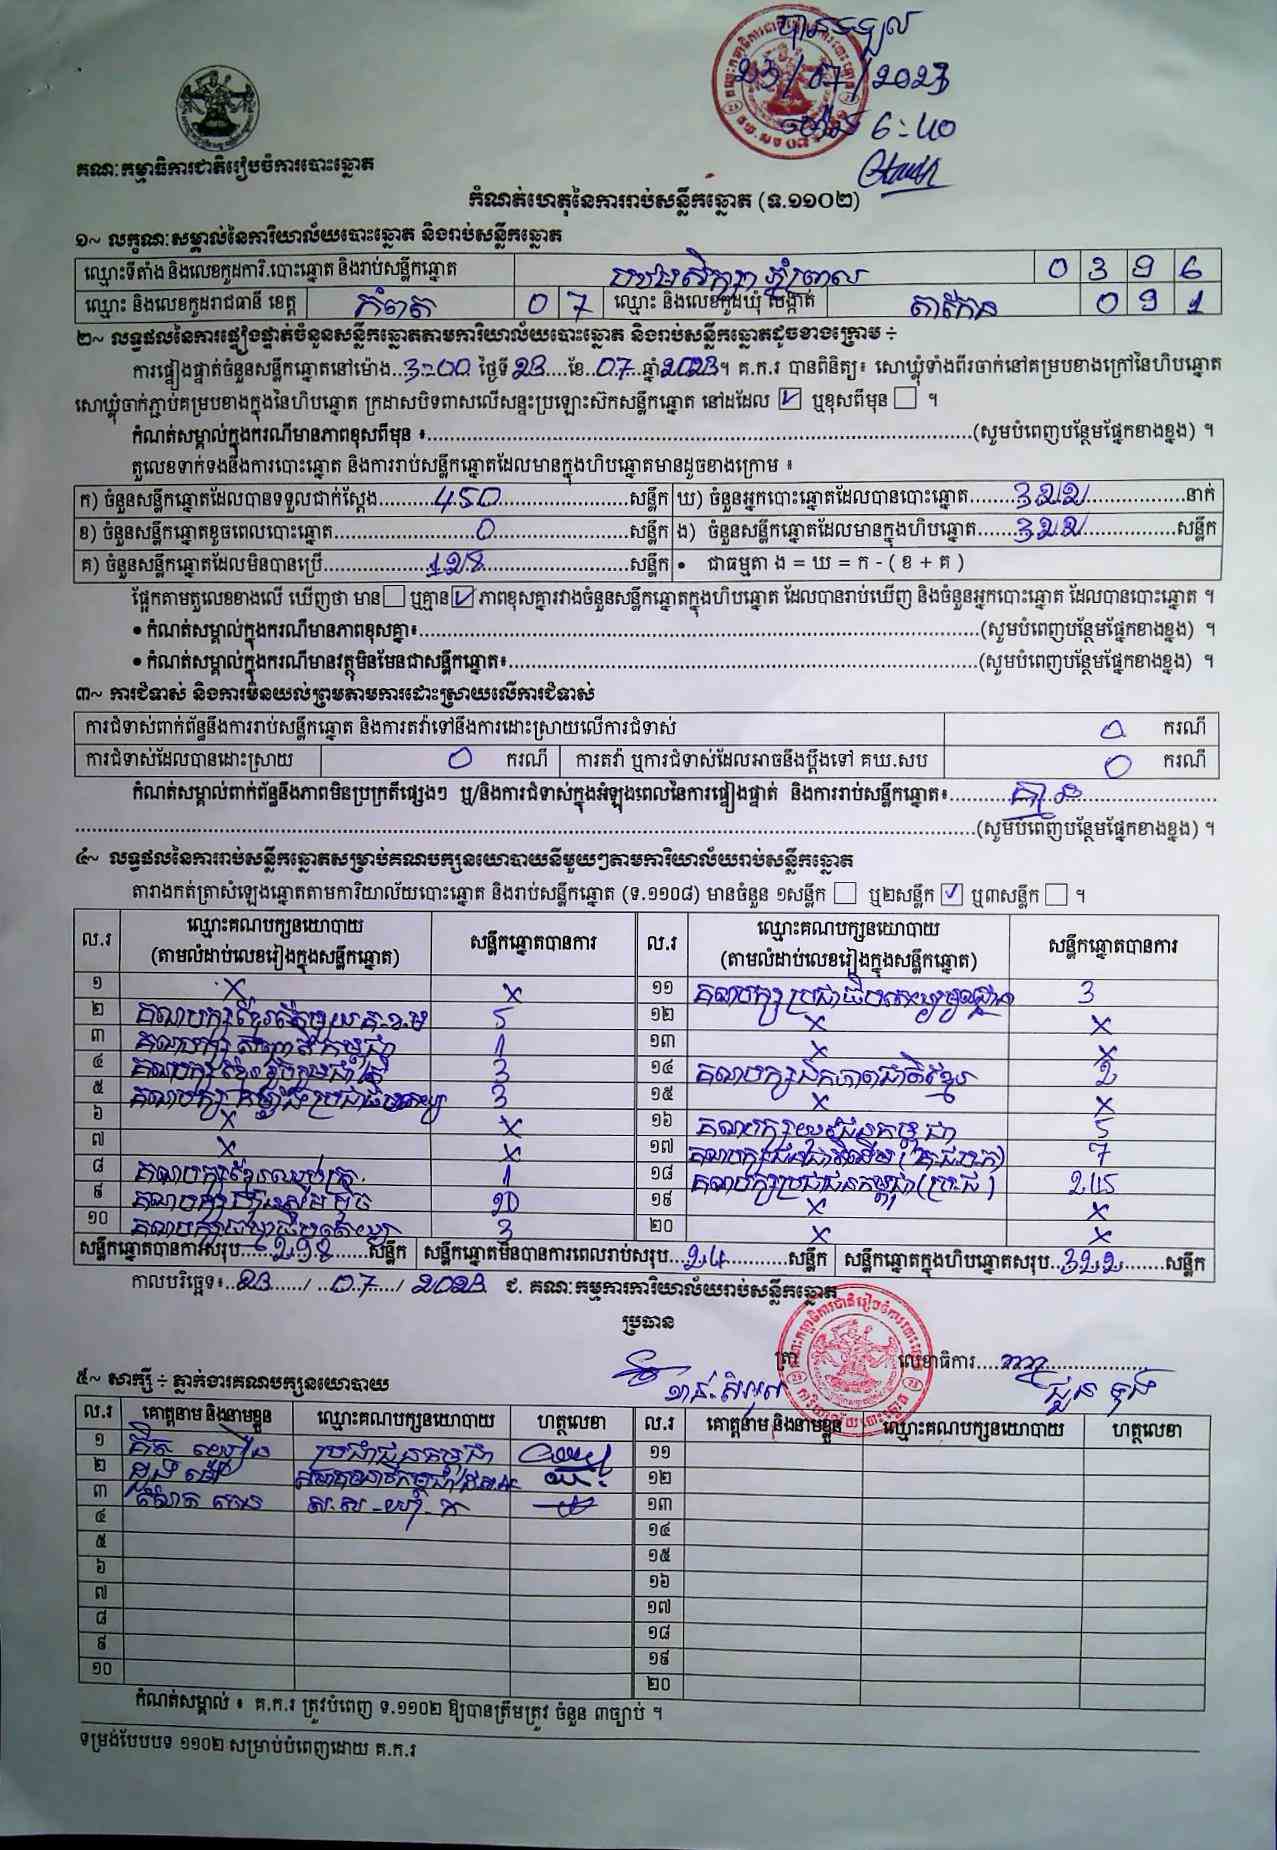 បានទទួល
23/07/2023
ម៉ោង 6:40
គណៈកម្មាធិការជាតិរៀបចំការបោះឆ្នោត
កំណត់ហេតុនៃការរាប់សន្លឹកឆ្នោត (ទ.១១០២)
១~ លក្ខណៈសម្គាល់នៃការិយាល័យបោះឆ្នោត និងរាប់សន្លឹកឆ្នោត
ឈ្មោះទីតាំង និងលេខកូដការិ.បោះឆ្នោត និងរាប់សន្លឹកឆ្នោត បឋមសិក្សា ភ្នំព្រាល 0 3 9 6
ឈ្មោះ និងលេខកូដរាជធានី ខេត្ត កំពត 0 7 ឈ្មោះ និងលេខកូដឃុំ សង្កាត់ តាដកាន 0 9 1
២~ លទ្ធផលនៃការផ្ទៀងផ្ទាត់ចំនួនសន្លឹកឆ្នោតតាមការិយាល័យបោះឆ្នោត និងរាប់សន្លឹកឆ្នោតដូចខាងក្រោម ÷
ការផ្ទៀងផ្ទាត់ចំនួនសន្លឹកឆ្នោតនៅម៉ោង..3:00 ថ្ងៃទី 23....ខែ..07..ឆ្នាំ 2023។ គ.ក.រ បានពិនិត្យ៖ សោឃ្លុំទាំងពីរចាក់នៅគម្របខាងក្រៅនៃហិបឆ្នោត
សោឃ្លុំចាក់ភ្ជាប់គម្របខាងក្នុងនៃហិបឆ្នោត ក្រដាសបិទពាសលើសន្ទះប្រឡោះស៊កសន្លឹកឆ្នោត នៅដដែល ☑ ឬខុសពីមុន ☐ ។
កំណត់សម្គាល់ក្នុងករណីមានភាពខុសពីមុន ៖...(សូមបំពេញបន្ថែមផ្នែកខាងខ្នង) ។
តួលេខទាក់ទងនឹងការបោះឆ្នោត និងការរាប់សន្លឹកឆ្នោតដែលមានក្នុងហិបឆ្នោតមានដូចខាងក្រោម ៖
ក) ចំនួនសន្លឹកឆ្នោតដែលបានទទួលជាក់ស្តែង...450...សន្លឹក ឃ) ចំនួនអ្នកបោះឆ្នោតដែលបានបោះឆ្នោត...322...នាក់
ខ) ចំនួនសន្លឹកឆ្នោតខូចពេលបោះឆ្នោត...0...សន្លឹក ង) ចំនួនសន្លឹកឆ្នោតដែលមានក្នុងហិបឆ្នោត...322...សន្លឹក
គ) ចំនួនសន្លឹកឆ្នោតដែលមិនបានប្រើ...128...សន្លឹក • ជាធម្មតា ង = ឃ = ក - ( ខ + គ )
ផ្អែកតាមតួលេខខាងលើ ឃើញថា មាន ☐ ឬគ្មាន ☑ ភាពខុសគ្នារវាងចំនួនសន្លឹកឆ្នោតក្នុងហិបឆ្នោត ដែលបានរាប់ឃើញ និងចំនួនអ្នកបោះឆ្នោត ដែលបានបោះឆ្នោត ។
• កំណត់សម្គាល់ក្នុងករណីមានភាពខុសគ្នា៖...(សូមបំពេញបន្ថែមផ្នែកខាងខ្នង) ។
• កំណត់សម្គាល់ក្នុងករណីមានវត្ថុមិនមែនជាសន្លឹកឆ្នោត៖...(សូមបំពេញបន្ថែមផ្នែកខាងខ្នង) ។
៣~ ការជំទាស់ និងការមិនយល់ព្រមតាមការដោះស្រាយលើការជំទាស់
ការជំទាស់ពាក់ព័ន្ធនឹងការរាប់សន្លឹកឆ្នោត និងការតវ៉ាទៅនឹងការដោះស្រាយលើការជំទាស់ 0 ករណី
ការជំទាស់ដែលបានដោះស្រាយ 0 ករណី ការតវ៉ា ឬការជំទាស់ដែលអាចនឹងប្តឹងទៅ គឃ.សប 0 ករណី
កំណត់សម្គាល់ពាក់ព័ន្ធនឹងភាពមិនប្រក្រតីផ្សេងៗ ឬ/និងការជំទាស់ក្នុងអំឡុងពេលនៃការផ្ទៀងផ្ទាត់ និងការរាប់សន្លឹកឆ្នោត៖...គ្មាន...
...(សូមបំពេញបន្ថែមផ្នែកខាងខ្នង) ។
៤~ លទ្ធផលនៃការរាប់សន្លឹកឆ្នោតសម្រាប់គណបក្សនយោបាយនីមួយៗតាមការិយាល័យរាប់សន្លឹកឆ្នោត
តារាងកត់ត្រាសំឡេងឆ្នោតតាមការិយាល័យបោះឆ្នោត និងរាប់សន្លឹកឆ្នោត (ទ.១១០៨) មានចំនួន ១សន្លឹក ☐ ឬ២សន្លឹក ☑ ឬ៣សន្លឹក ☐ ។
ល.រ ឈ្មោះគណបក្សនយោបាយ (តាមលំដាប់លេខរៀងក្នុងសន្លឹកឆ្នោត) សន្លឹកឆ្នោតបានការ ល.រ ឈ្មោះគណបក្សនយោបាយ (តាមលំដាប់លេខរៀងក្នុងសន្លឹកឆ្នោត) សន្លឹកឆ្នោតបានការ
១ x x ១១ គណបក្សប្រជាធិបតេយ្យមូលដ្ឋាន 3
២ គណបក្សខ្មែរតែមួយ គ.ខ.ម 5 ១២ x x
៣ គណបក្ស សញ្ជាតិកម្ពុជា 1 ១៣ x x
៤ គណបក្សខ្មែររួបរួមជាតិ 3 ១៤ គណបក្សឯកភាពជាតិខ្មែរ 2
៥ គណបក្សកម្លាំងប្រជាធិបតេយ្យ 3 ១៥ x x
៦ x x ១៦ គណបក្សយុវជនកម្ពុជា 5
៧ x x ១៧ គណបក្សជនជាតិដើម (គ.ជ.ប.ក) 7
៨ គណបក្សខ្មែរឈប់ក្រ 1 ១៨ គណបក្សប្រជាជនកម្ពុជា (ប្រ.ជ) 245
៩ គណបក្សហ្វ៊ុនស៊ិនប៉ិច 20 ១៩ x x
១០ គណបក្សធម្មាធិបតេយ្យ 3 ២០ x x
សន្លឹកឆ្នោតបានការសរុប...298...សន្លឹក សន្លឹកឆ្នោតមិនបានការពេលរាប់សរុប...24...សន្លឹក សន្លឹកឆ្នោតក្នុងហិបឆ្នោតសរុប..322...សន្លឹក
កាលបរិច្ឆេទ៖..23..../..07..../ 2023 ជ. គណៈកម្មការការិយាល័យរាប់សន្លឹកឆ្នោត
ប្រធាន
ត្រា លេខាធិការ...
ជួន ទុង
៥~ សាក្សី ÷ ភ្នាក់ងារគណបក្សនយោបាយ
ល.រ គោត្តនាម និងនាមខ្លួន ឈ្មោះគណបក្សនយោបាយ ហត្ថលេខា ល.រ គោត្តនាម និងនាមខ្លួន ឈ្មោះគណបក្សនយោបាយ ហត្ថលេខា
១ ប្រជាជនកម្ពុជា ១១
២ ១២
៣ ស.ស.យ.ក ១៣
៤ ១៤
៥ ១៥
៦ ១៦
៧ ១៧
៨ ១៨
៩ ១៩
១០ ២០
កំណត់សម្គាល់ ៖ គ.ក.រ ត្រូវបំពេញ ទ.១១០២ ឱ្យបានត្រឹមត្រូវ ចំនួន ៣ច្បាប់ ។
ទម្រង់បែបបទ ១១០២ សម្រាប់បំពេញដោយ គ.ក.រ